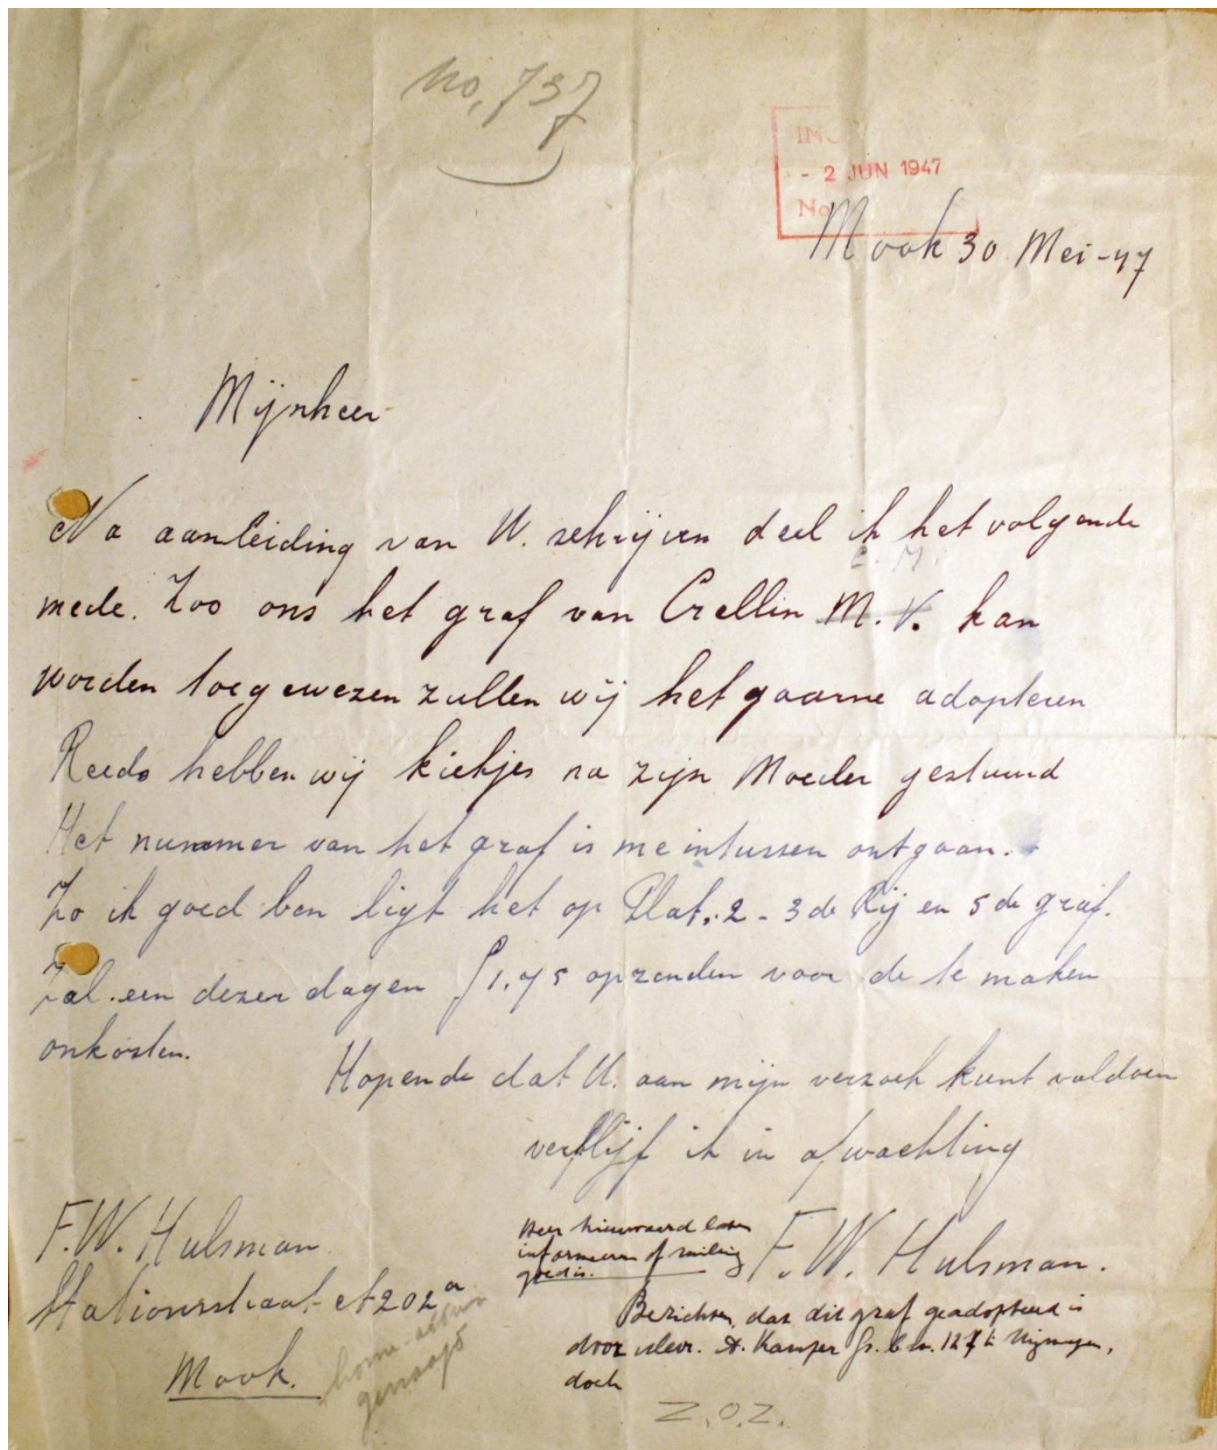 No. 737
- 2 JUN 1947
No
Mook 30 Mei-47
Mijnheer
Na aanleiding van U. schrijven deel ik het volgende
mede. Zoo ons het graf van Crellin M. V. kan
worden toegewezen zullen wij het gaarne adopteren
Reeds hebben wij kiekjes na zijn Moeder gestuurd
Het nummer van het graf is me intussen ontgaan.
Zo ik goed ben ligt het op Plat. 2 - 3de Rij en 5de graf.
Zal een dezer dagen f1,75 opzenden voor de te maken
onkosten.
Hopende dat U. aan mijn verzoek kunt voldoen
verblijf ik in afwachting
F.W. Hulsman.
F.W. Hulsman
Stationsstraat A202a
Mook.
laten
informeeren of
goed is.
Berichten, dat dit graf geadopteerd is
door A. Kamper Nijmegen,
doch
Z.O.Z.